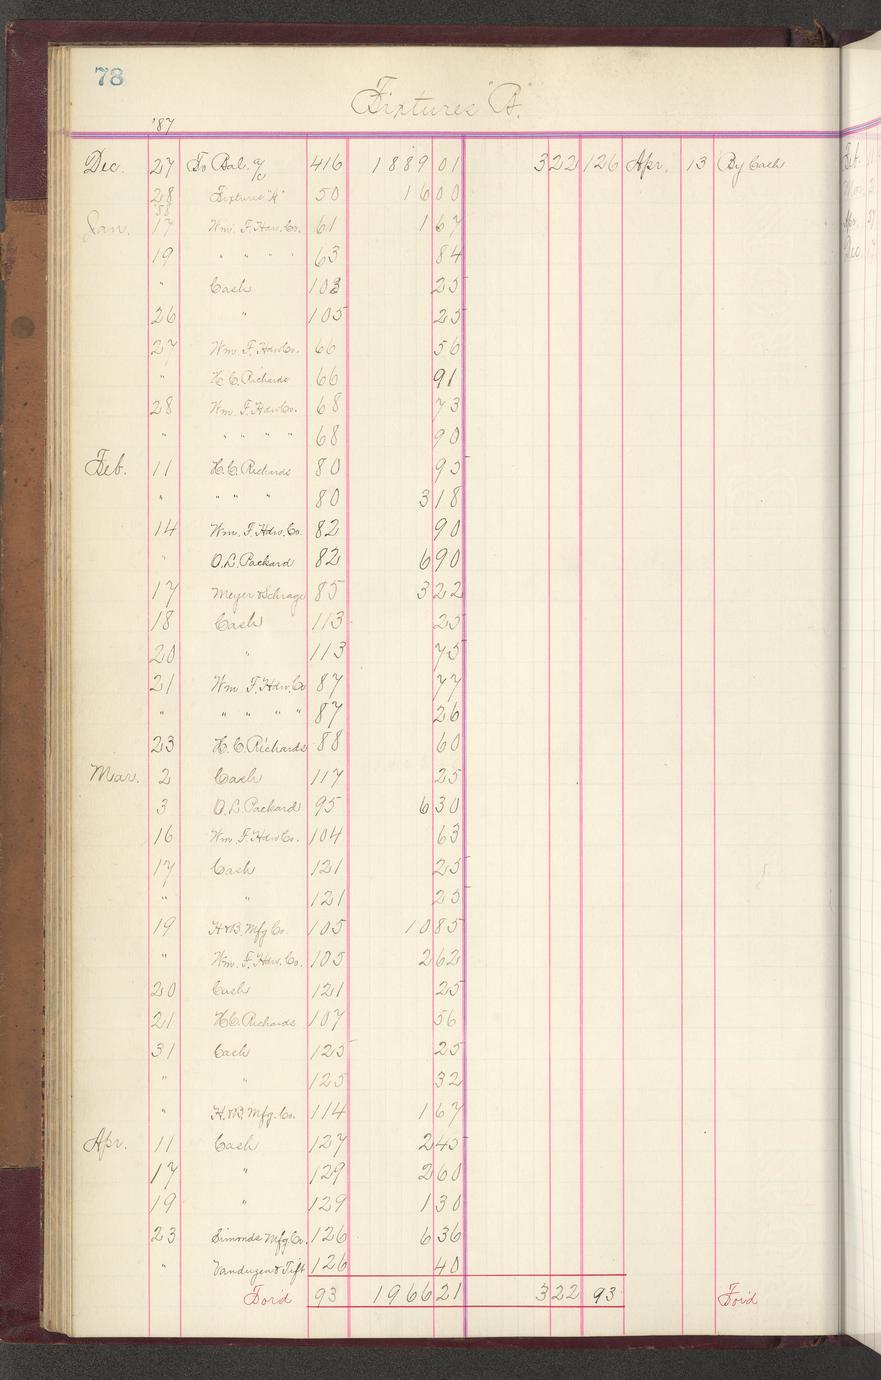 78
Fixtures "B."
'87
Dec. 27 To Bal. a/c 416 1889 01 3 22 126 Apr. 13 By Cash
28 Fixture "A" 50 16 00
'88
Jan. 17 Wm. F. Hdw. Co. 61 1 67
19 " " " " 63 84
" Cash 103 25
26 " 105 25
27 Wm. F. Hdw Co. 66 56
" H. C. Richards 66 91
28 Wm. F. Hdw Co. 68 73
" " " " " 68 90
Feb. 11 H. C. Richards 80 95
" " " " 80 3 18
14 Wm. F. Hdw. Co. 82 90
" O. L. Packard 82 6 90
17 Meyer & Schrage 85 3 22
18 Cash 113 25
20 " 113 75
21 Wm. F. Hdw. Co 87 77
" " " " " 87 26
23 H. C. Richards 88 60
Mar. 2 Cash 117 25
3 O. L. Packard 95 6 30
16 Wm. F. Hdw Co. 104 63
17 Cash 121 25
" " 121 25
19 H & B. Mfg Co. 105 10 85
" Wm. F. Hdw. Co. 105 2 62
20 Cash 121 25
21 H. C. Richards 107 56
31 Cash 125 25
" " 125 32
" H. & B. Mfg. Co. 114 1 67
Apr. 11 Cash 127 2 45
17 " 129 2 60
19 " 129 1 30
23 Simonds Mfg. Co. 126 6 36
" Vanduzen & Tift 126 40
For'd 93 1966 21 3 22 93 For'd
Feb.
Mar.
Apr.
Dec.